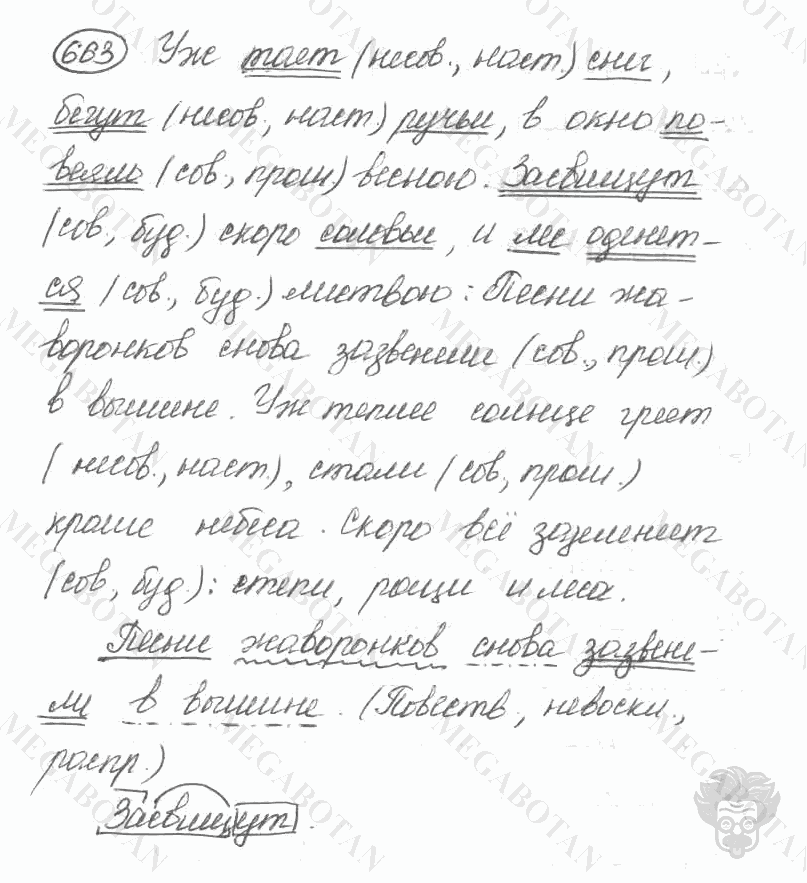 663 Уж тает (несов., наст.) снег,
бегут (несов, наст) ручьи, в окно по-
веяло (сов., прош.) весною. Засвищут
(сов, буд.) скоро соловьи, и лес оденет-
ся (сов., буд.) листвою: Песни жа-
воронков снова зазвенели (сов., прош.)
в вышине. Уж теплее солнце греет
(несов., наст.), стали (сов, прош.)
краше небеса. Скоро всё зазеленеет
(сов, буд.): степи, рощи и леса.
Песни жаворонков снова зазвене-
ли в вышине. (Повеств, невоскл.,
распр.)
Засвищут.
MEGABOTAN